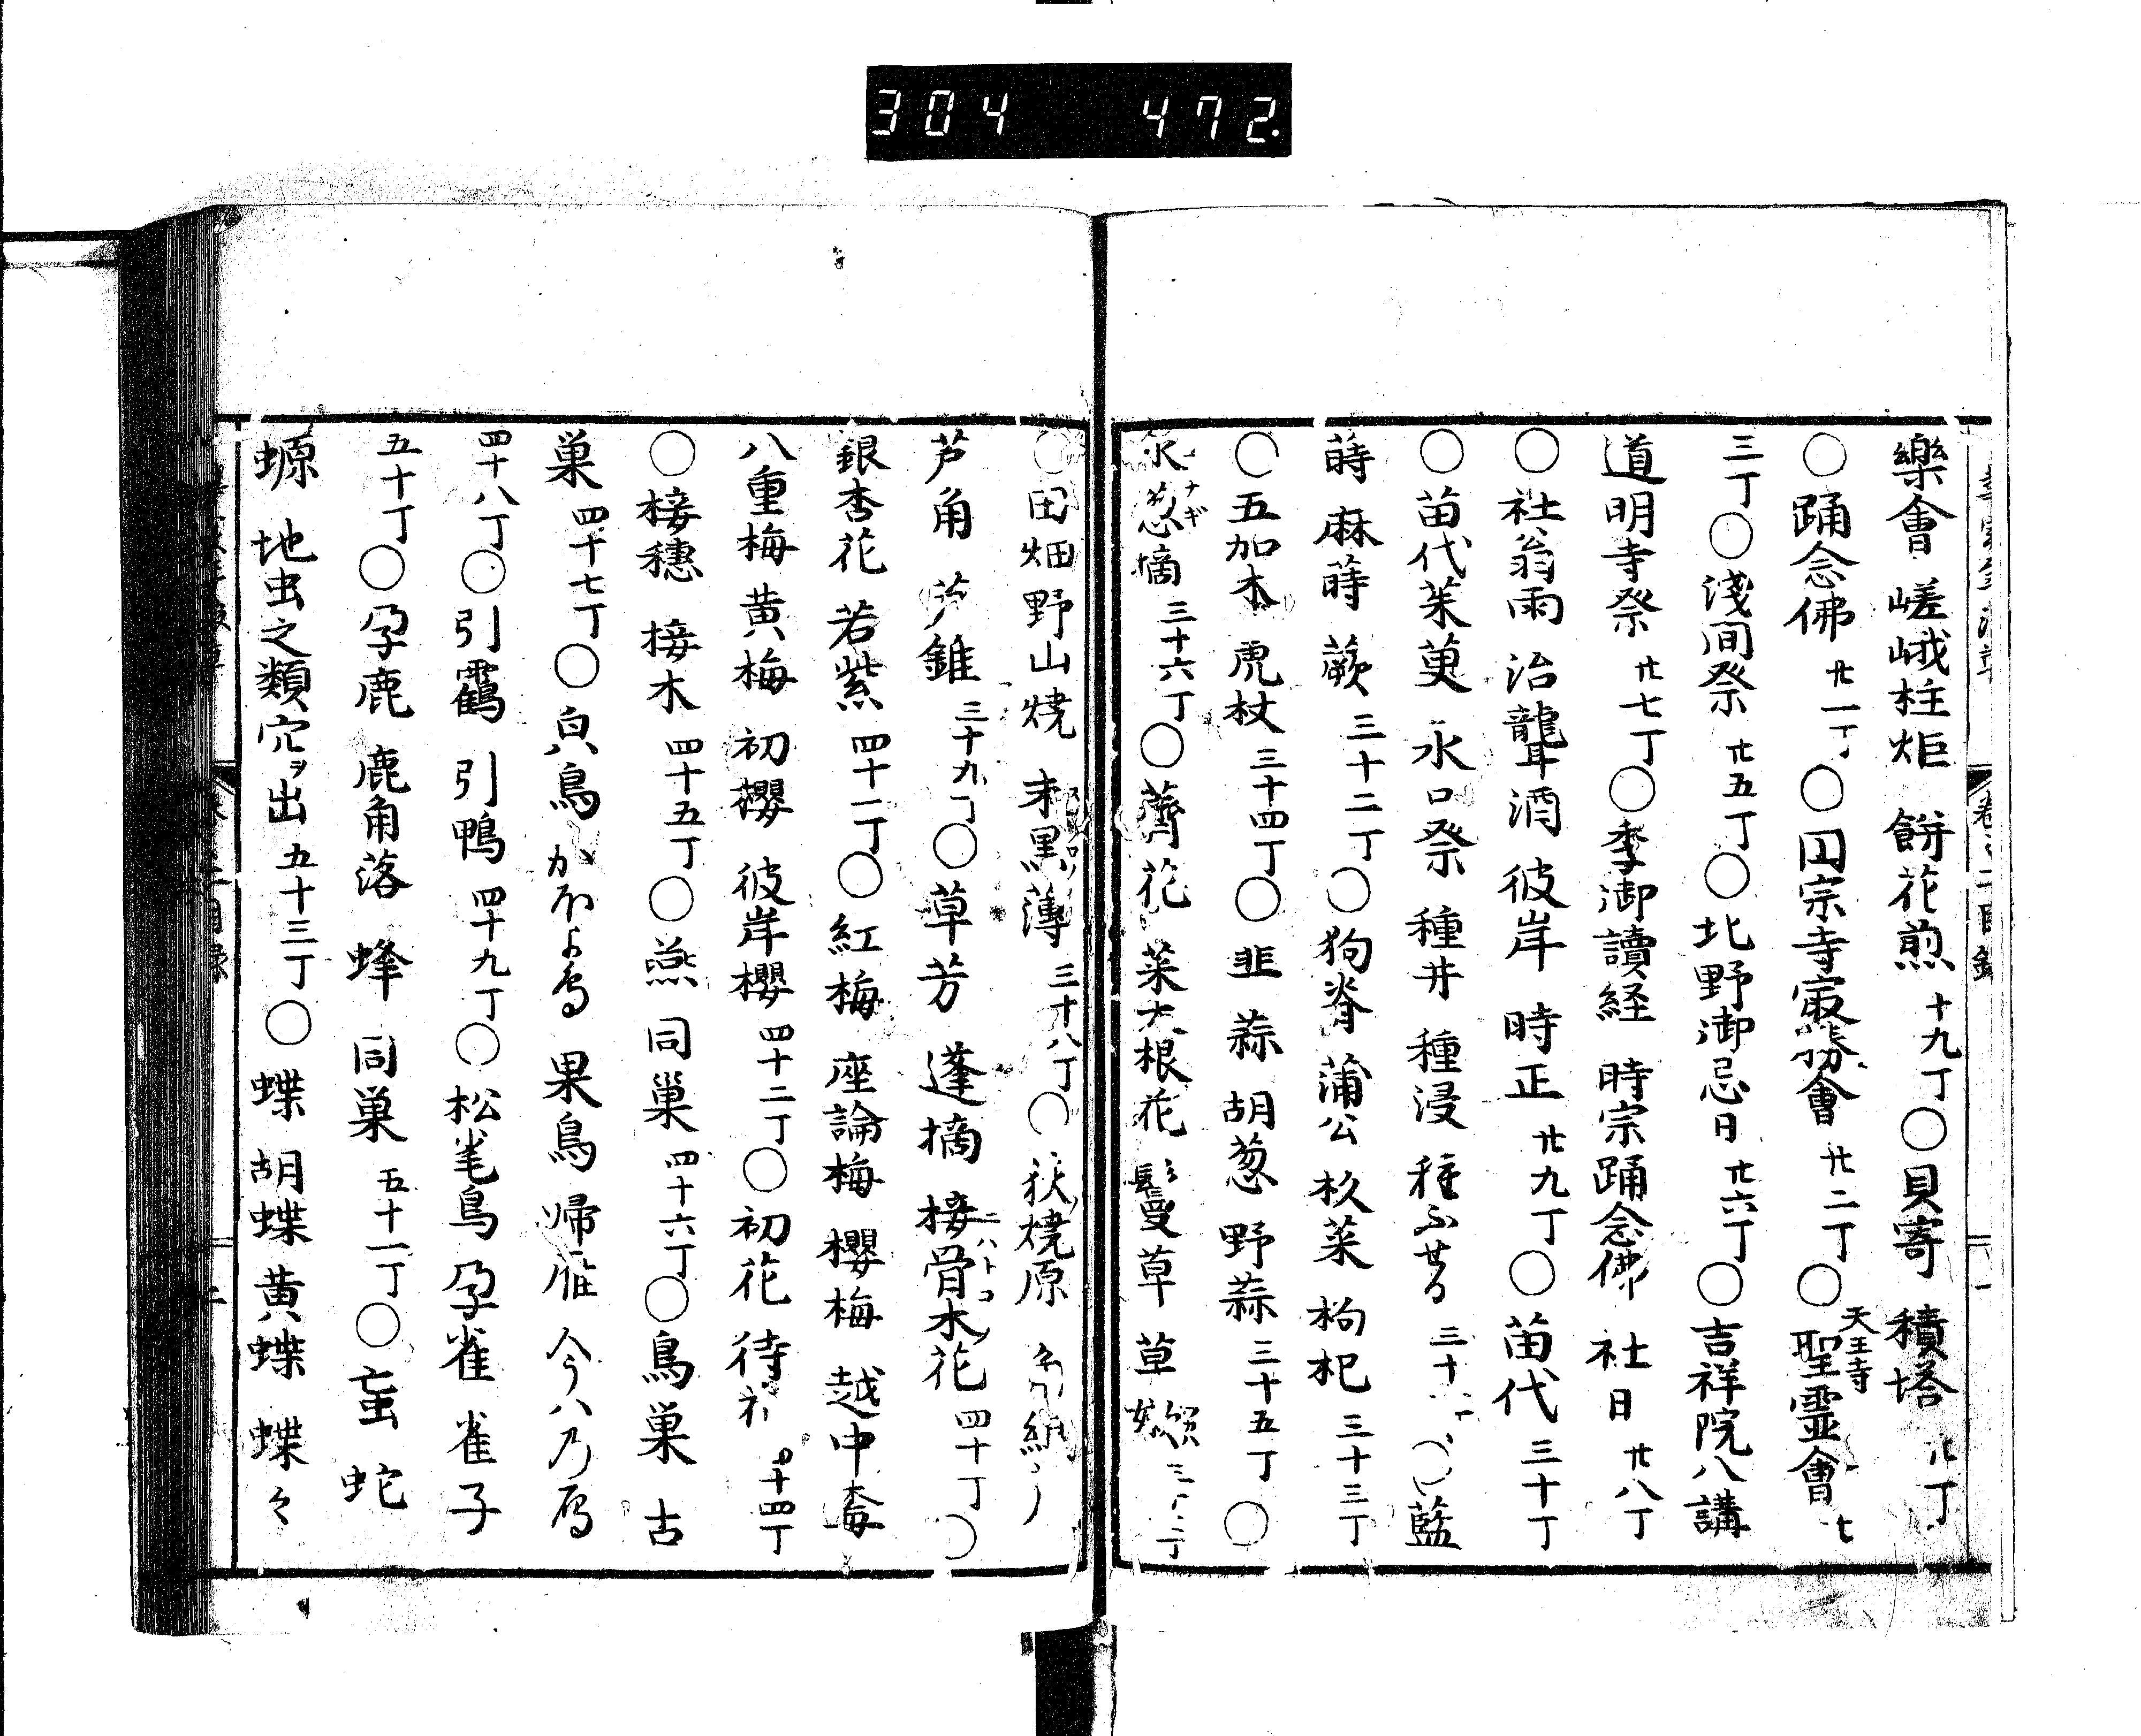 304 472.
樂會 嵯峨柱炬 餅花煎 十九丁○貝寄 積塔 廿丁
○踊念佛 廿一丁○円宗寺宼勝會 廿二丁○天王寺聖靈會 廿
三丁○淺间祭 廿五丁○北野御忌日 廿六丁○吉祥院八講
道明寺祭 廿七丁○季御讀経 時宗踊念佛 社日 廿八丁
○社翁雨 治聾酒 彼岸 時正 廿九丁○苗代 三十丁
○苗代茱萸 水口祭 種井 種浸 種ふせる 三十一丁○藍
蒔 麻蒔 蕨 三十二丁○狗脊 蒲公 杦菜 枸杞 三十三丁
○五加木 虎杖 三十四丁○韭 蒜 胡葱 野蒜 三十五丁○
水葱摘 三十六丁○薺花 菜大根花 鬘草 草
○田畑野山焼 末黒薄 三十八丁○荻燒原
芦角 芦錐 三十九丁○草芳 蓬摘 接骨木花 四十丁○
銀杏花 若紫 四十一丁○紅梅 座論梅 櫻梅 越中梅
八重梅 黄梅 初櫻 彼岸櫻 四十二丁○初花 待 四十四丁
○接穗 接木 四十五丁○燕 同巢 四十六丁○鳥巣 古
巣 四十七丁○貌鳥 かほよ鳥 果鳥 帰雁 今ハ乃雁
四十八丁○引鶴 引鴨 四十九丁○松毟鳥 孕雀 雀子
五十丁○孕鹿 鹿角落 蜂 同巣 五十一丁○䖟 蛇
螈 地虫之類穴ヲ出 五十三丁○蝶 胡蝶 黄蝶 蝶々